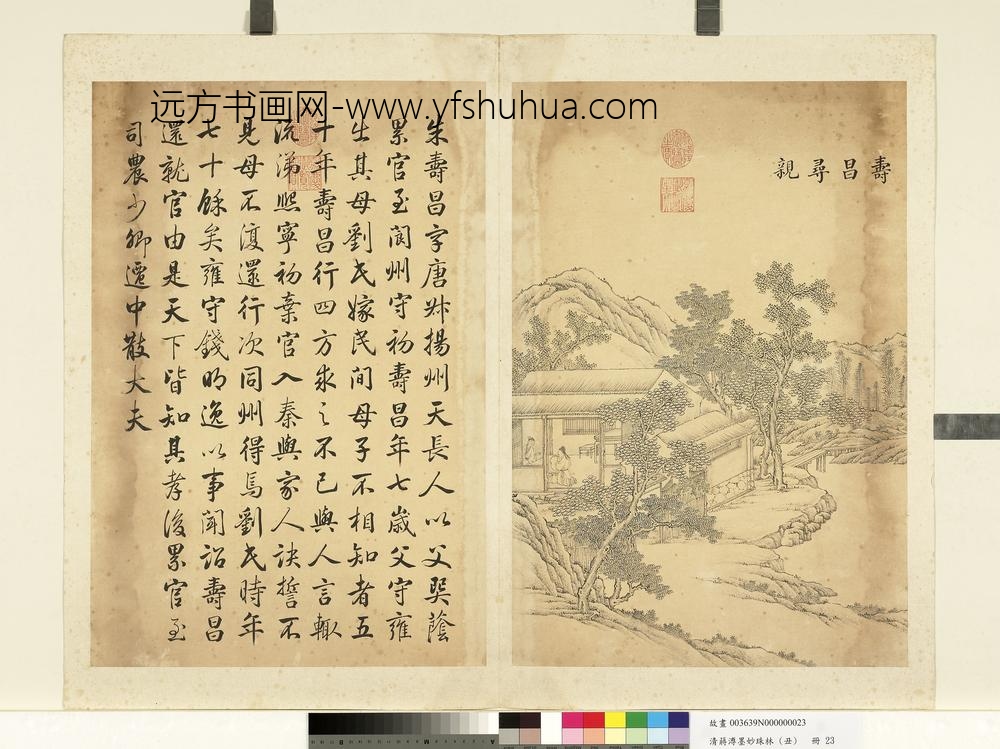 远方书画网-www.yfshuhua.com
壽昌尋親
朱壽昌字唐叔揚州天長人以父巽蔭
累官至閬州守初壽昌年七歲父守雍
出其母劉氏嫁民間母子不相知者五
十年壽昌行四方求之不已與人言輒
流涕熙寧初棄官入秦與家人訣誓不
見母不復還行次同州得焉劉氏時年
七十餘矣雍守錢明逸以事聞詔壽昌
還就官由是天下皆知其孝後累官至
司農少卿遷中散大夫
故畫 003639N000000023
清蔣溥墨妙珠林（丑） 冊 23